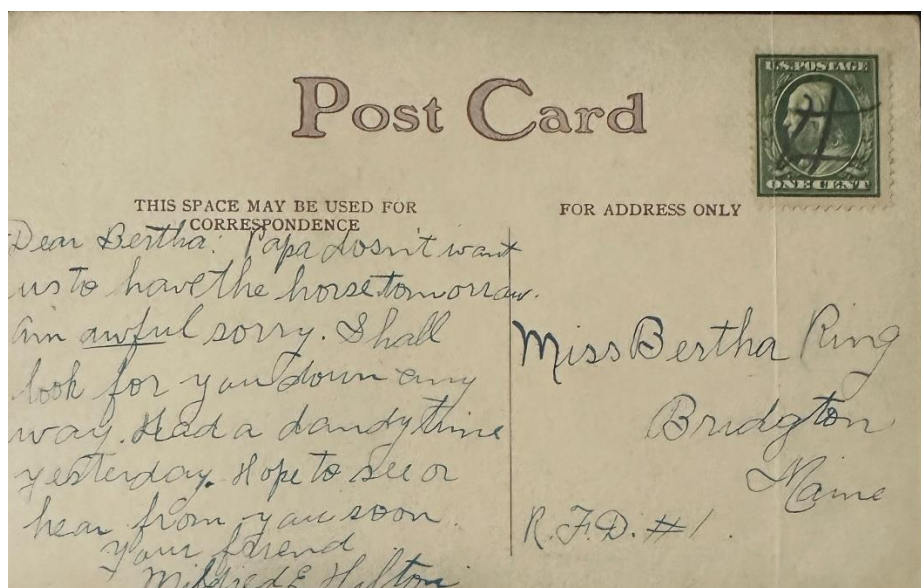 U.S. POSTAGE
ONE CENT
Post Card
THIS SPACE MAY BE USED FOR
CORRESPONDENCE
FOR ADDRESS ONLY
Dear Bertha: Papa dosn't want
us to have the horse tomorrow.
Am awful sorry. Shall
look for you down any
way. Had a dandy time
yesterday. Hope to see or
hear from you soon.
Your friend
Mildred E Hilton
Miss Bertha Ring
Bridgton
Maine
R.F.D. #1